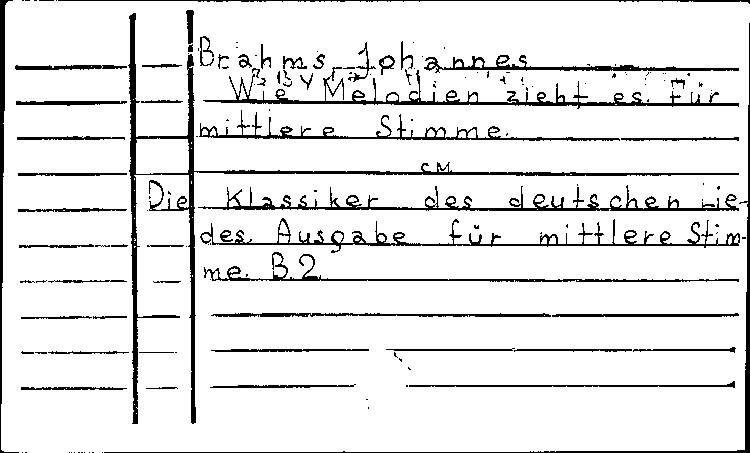 Brahms, Johannes
Wie Melodien zieht es. Für
mittlere Stimme.
см
Die Klassiker des deutschen Lie-
des. Ausgabe für mittlere Stim-
me. B.2